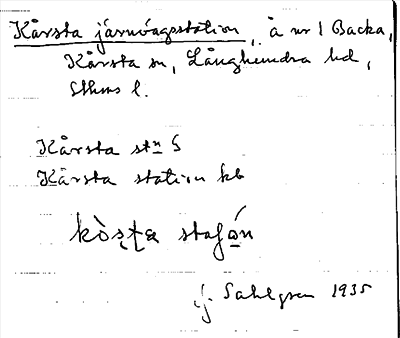 Kårsta järnvägsstation, å nr 1 Backa,
Kårsta sn, Långhundra hd,
Sthms l.
Kårsta stn S
Kårsta station kb
kòṣṭa staʃọ́n
J. Sahlgren 1935